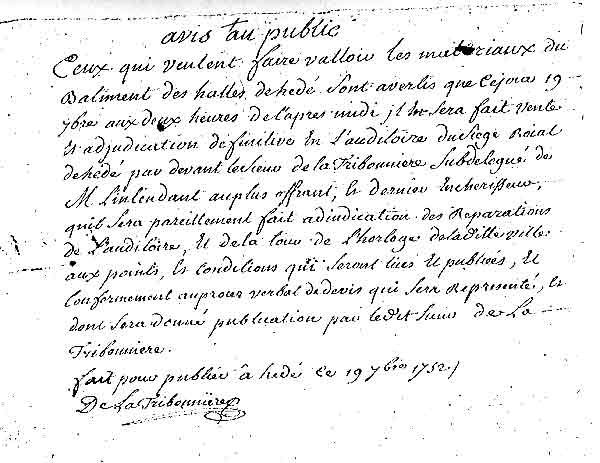 avis au public
Ceux qui veulent faire valloir les materiaux du
Batiment des halles dehedé sont avertis que Cejour 19
7bre aux deux heures de l'apres midi jl En sera fait vente
Et adjudication definitive En L'auditoire du siege Roial
dehedé par devant le sieur de la Tribonniere Subdelegué de
M L'intendant au plus offrant, Et dernier Encherisseur,
quil sera pareillement fait adjudication des Reparations
de L'auditoire, Et de la tour de L'horloge de la ditte ville
aux points, Et conditions qui seront lües Et publiées, Et
Conformement au proces verbal de devis qui sera Representé, Et
dont sera donné publication par le dt sieur de La
Tribonniere.
fait pour publier â hedé ce 19 7bre 1752
De La Tribonniere